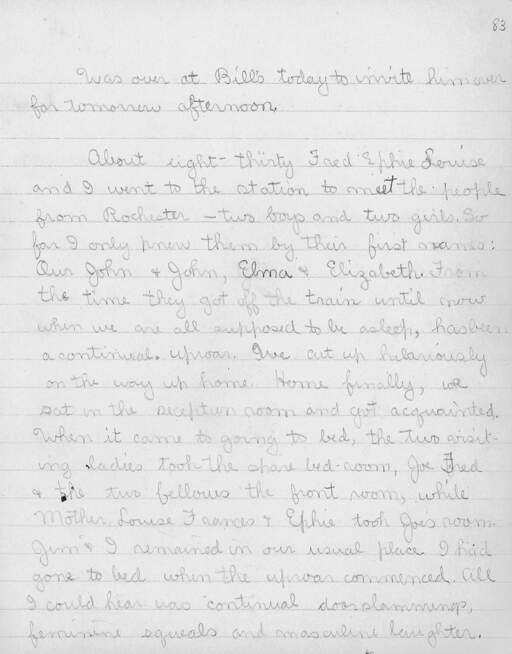 83
Was over at Bill's today to invite him over
for tomorrow afternoon.
About eight-thirty Fred Ephie Louise
and I went to the station to meet the people
from Rochester – two boys and two girls. So
far I only knew them by their first names:
Our John & John, Elma & Elizabeth. From
the time they got off the train until now
when we are all supposed to be asleep, has been
a continual uproar. We cut up hilariously
on the way up home. Home finally, we
sat in the reception room and got acquainted.
When it came to going to bed, the two visit-
ing ladies took the spare bed-room, Joe Fred
& the two fellows the front room, while
Mother, Louise Frances & Ephie took Joe's room.
Jim & I remained in our usual place. I had
gone to bed when the uproar commenced. All
I could hear was continual door slammings,
feminine squeals and masculine laughter.